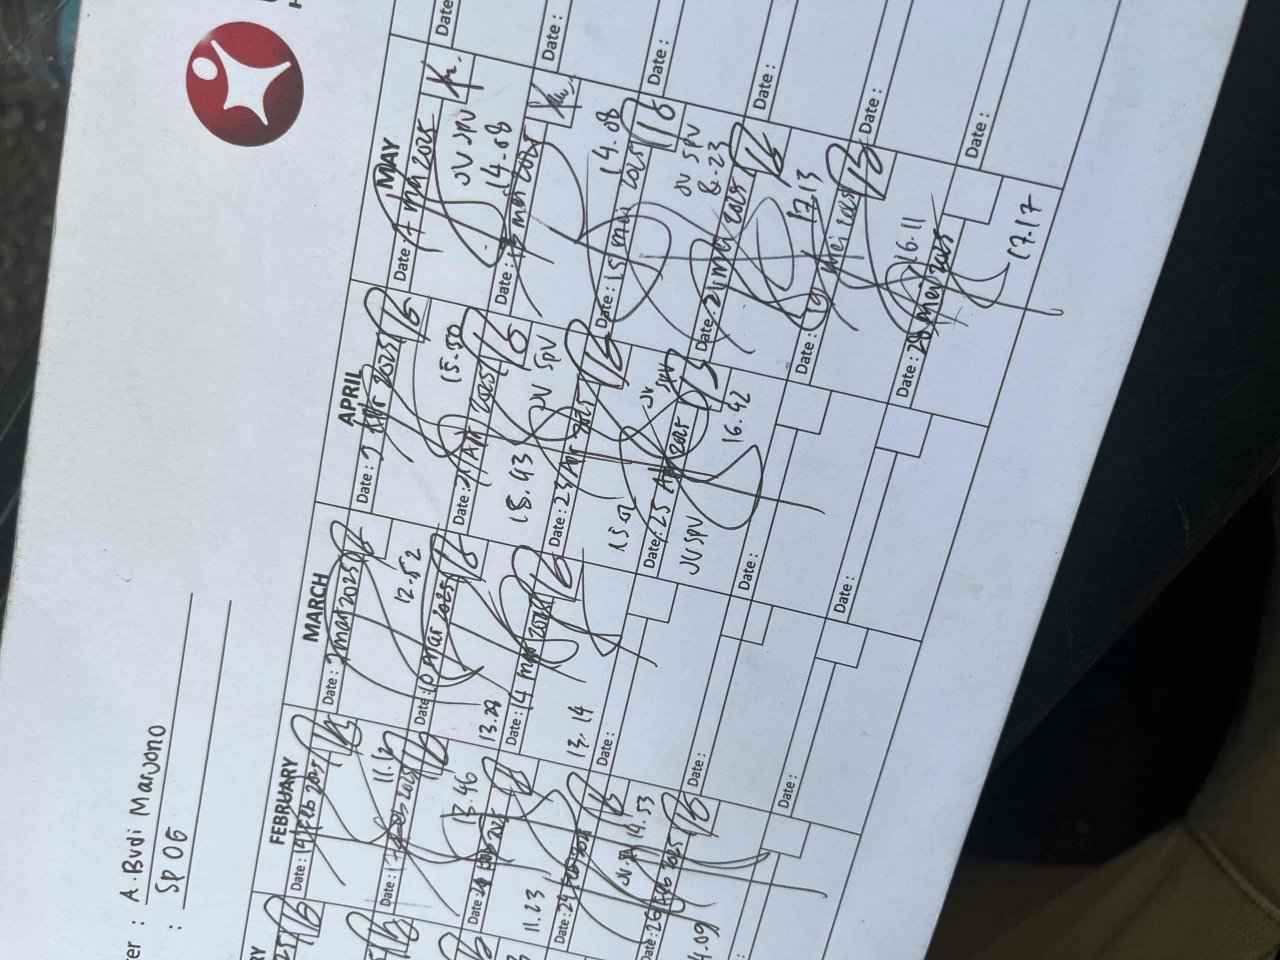 : A. Budi Marjono
: SP OG
FEBRUARY
Date: 14 Feb 2025
11.12
Date: Feb 2025
13.46
Date: 2025
11.23
Date: 24
JV 14.53
Date: 26 Feb 2025
4.09
MARCH
Date: 7 mar 2025
12.52
Date: mar 2025
13.28
Date: 14 mar 2025
13.14
Date:
Date:
Date:
APRIL
Date: 2025
15.50
Date: Apr 2025
18.43
JV SPV
Date: 23 Apr 2025
15.01
JV SPV
Date: 25 Apr 2025
JV SPV
16.42
Date:
Date:
MAY
Date: 7 mei 2025
JV SPV
14.08
Date: mei 2025
14.08
Date: 15 mei 2025
JV SPV
8.23
Date: 21 mei 2025
17.13
Date: 19 mei 2025
16.11
Date: 28 mei 2025
17.17
Date
Date:
Date:
Date:
Date:
Date: